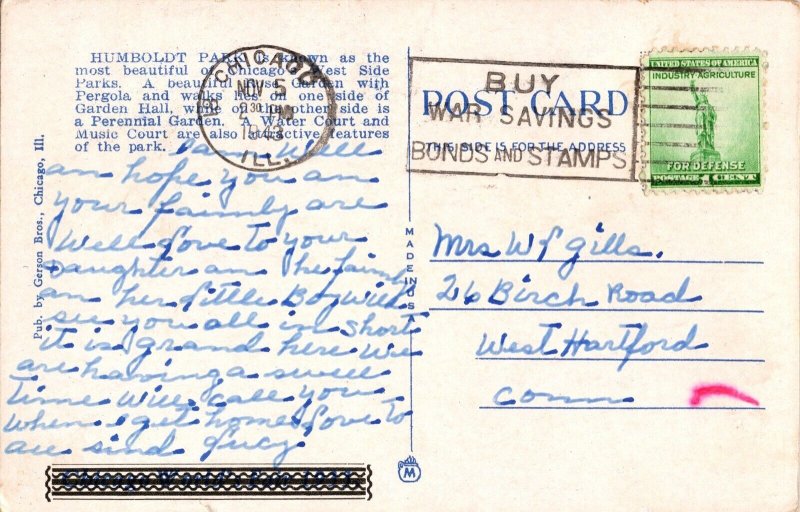 HUMBOLDT PARK is known as the
most beautiful of Chicago's West Side
Parks. A beautiful Rose Garden with
Pergola and walks lies on one side of
Garden Hall, while on the other side is
a Perennial Garden. A Water Court and
Music Court are also attractive features
of the park.
I am Well
an hope you an
your faimly are
Well love to your
Daughter an the faimly
an her little Boy Will
see you all in short
it is grand here We
are having a swell
Time Will call you
when I get home love to
all sind Lucy
Pub. by Gerson Bros., Chicago, Ill.
Chicago World's Fair 1933
CHICAGO
NOV 5
1943
ILL.
BUY
WAR SAVINGS
BONDS AND STAMPS
POST CARD
THIS SIDE IS FOR THE ADDRESS
UNITED STATES OF AMERICA
INDUSTRY AGRICULTURE
FOR DEFENSE
POSTAGE 1 CENT
MADE IN USA
Mrs W f gills.
26 Birch Road
West Hartford
Conn
M